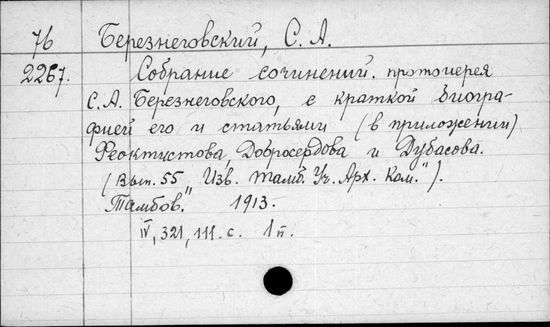 76 Березнеговский, С. А.
2267. Собрание сочинений протоиерея
С. А. Березнеговского, с краткой биогра-
фией его и статьями (в приложении)
Феоктистова, Добросердова и Дубасова.
(Вып. 55 Изв. Тамб. Уч. Арх. Ком.").
"Тамбов." 1913.
IV, 321, 111. с. 1 п.